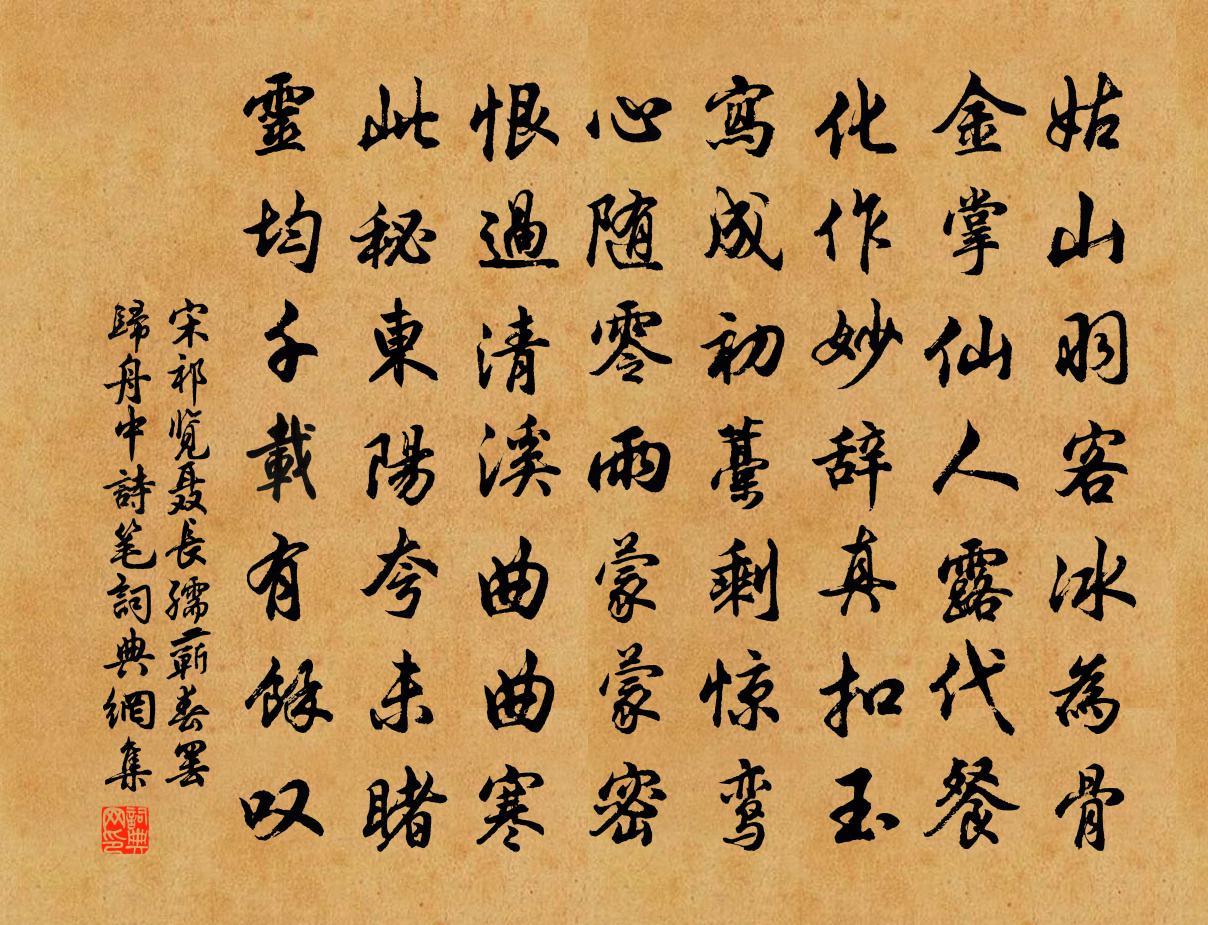 姑山羽客冰為骨
金掌仙人露代餐
化作妙辞真扣玉
寫成初藁剩惊鸾
心随零雨蒙蒙密
恨過清溪曲曲寒
此秘東陽夸未睹
靈均千載有餘叹
宋祁览聂長孺蕲春罢
歸舟中詩笔詞典網集
詞典
网印